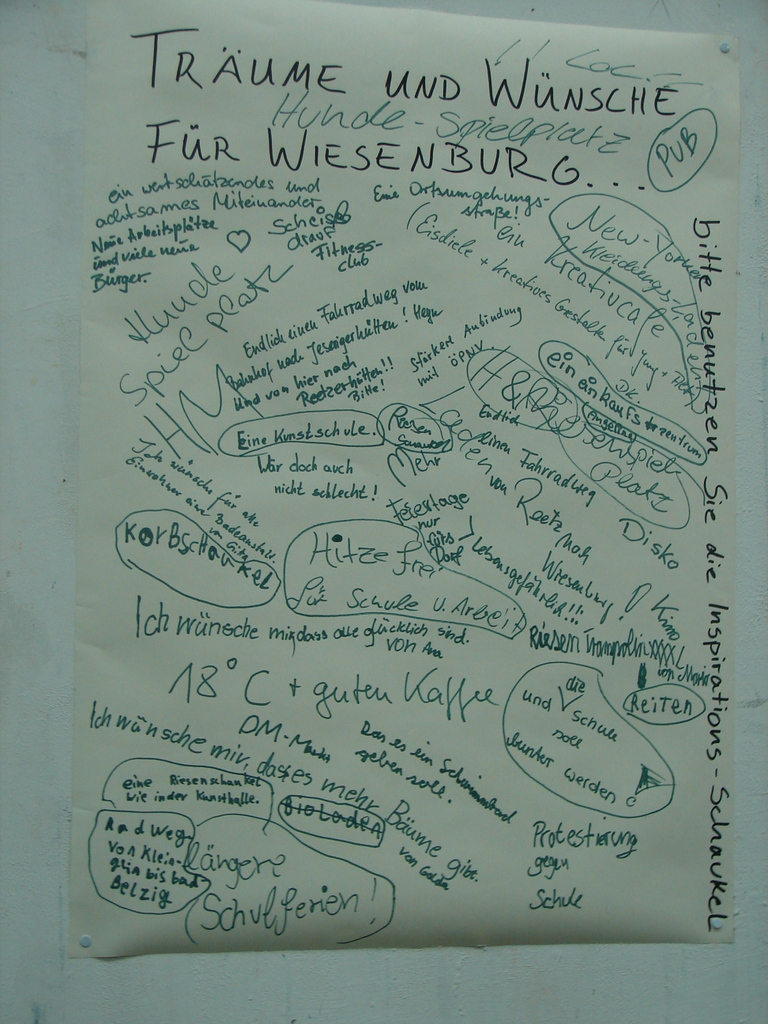 TRÄUME UND WÜNSCHE
FÜR WIESENBURG...
Hunde-Spielplatz
PUB
ein wertschätzendes und
achtsames Miteinander
Neue Arbeitsplätze
und viele neue
Bürger.
Scheiß
drauf
Fitness-
club
Eine Ortsumgehungs-
straße!
ein
Kreativcafe
(Eisdiele + kreatives Gestalten für Jung +
New-Yorker
Kleidungs-Laden
bitte benutzen Sie die Inspirations-Schaukel
Hunde
Spielplatz
Endlich einen Fahrradweg vom
Bahnhof nach Jeserigerhütten!
und von hier nach
Reetzerhütten!!
Bitte!
stärkere Anbindung
mit ÖPNV
HM
H&M
ein einkaufszentrum
Riesenspiel
Platz
Eine Kunstschule.
Wär doch auch
nicht schlecht!
Riesen
Schaukel
Mehr
Endlich
einen Fahrradweg
von Reetz nach
Wiesenburg!
Lebensgefährlich!!!
Disko
Kino
Ich wünsche für alle
Einwohner eine Badeanstalt.
Korbschaukel
Feiertage
nur
fürs
Dorf
Hitzefrei
für Schule u. Arbeit
Ich wünsche mir, dass alle glücklich sind.
von Ava
Riesen Trampolin XXXXL
von
Reiten
18°C + guten Kaffee
und die Schule
soll
bunter werden
DM-Markt
Das es ein Schwimmbad
geben soll.
Ich wünsche mir, dass es mehr Bäume gibt.
von
eine Riesenschaukel
wie in der Kunsthalle.
Bioladen
Radweg
von Klein-
glin bis bad
Belzig
längere
Schulferien!
Protestierung
gegen
Schule